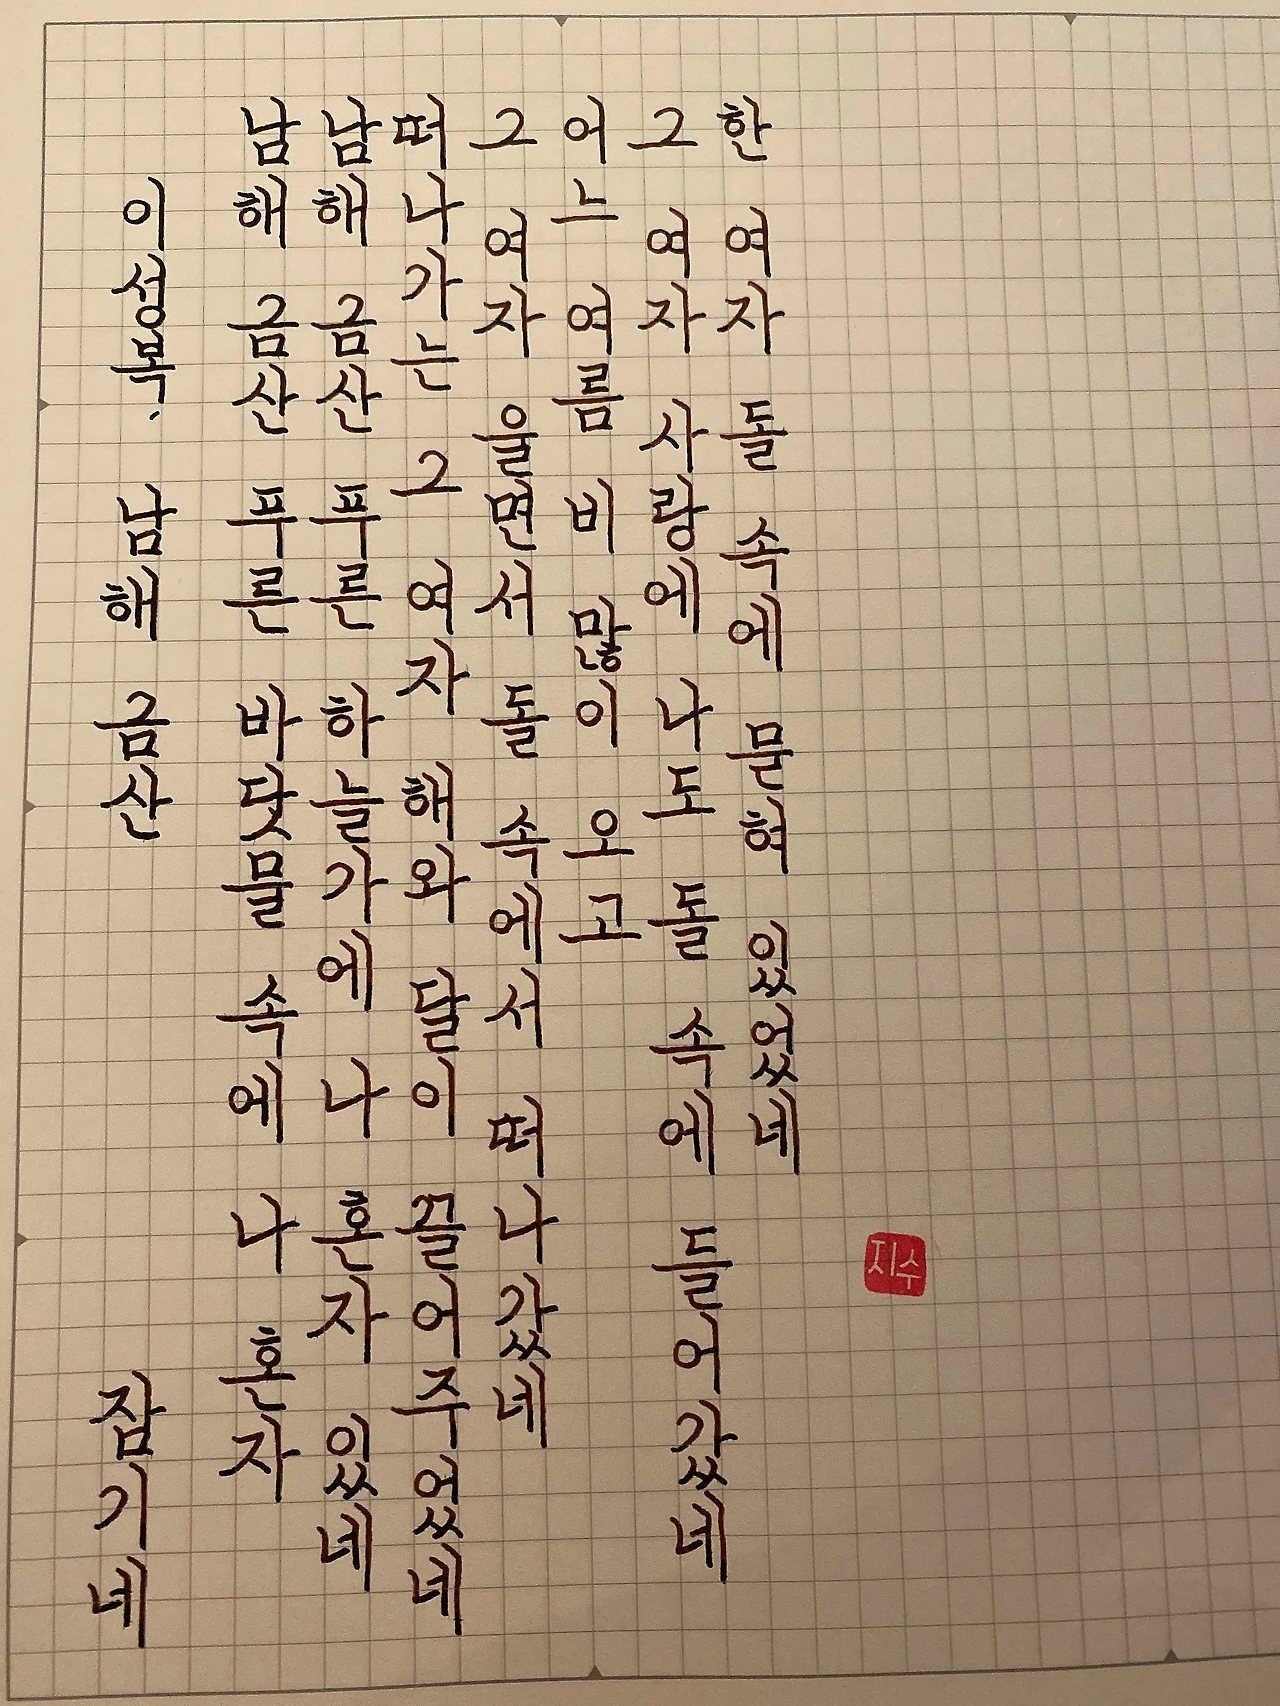 한 여자 돌 속에 묻혀 있었네
그 여자 사랑에 나도 돌 속에 들어갔네
어느 여름 비 많이 오고
그 여자 울면서 돌 속에서 떠나갔네
떠나가는 그 여자 해와 달이 끌어주었네
남해 금산 푸른 하늘가에 나 혼자 있네
남해 금산 푸른 바닷물 속에 나 혼자
잠기네
이성복. 남해 금산
지수